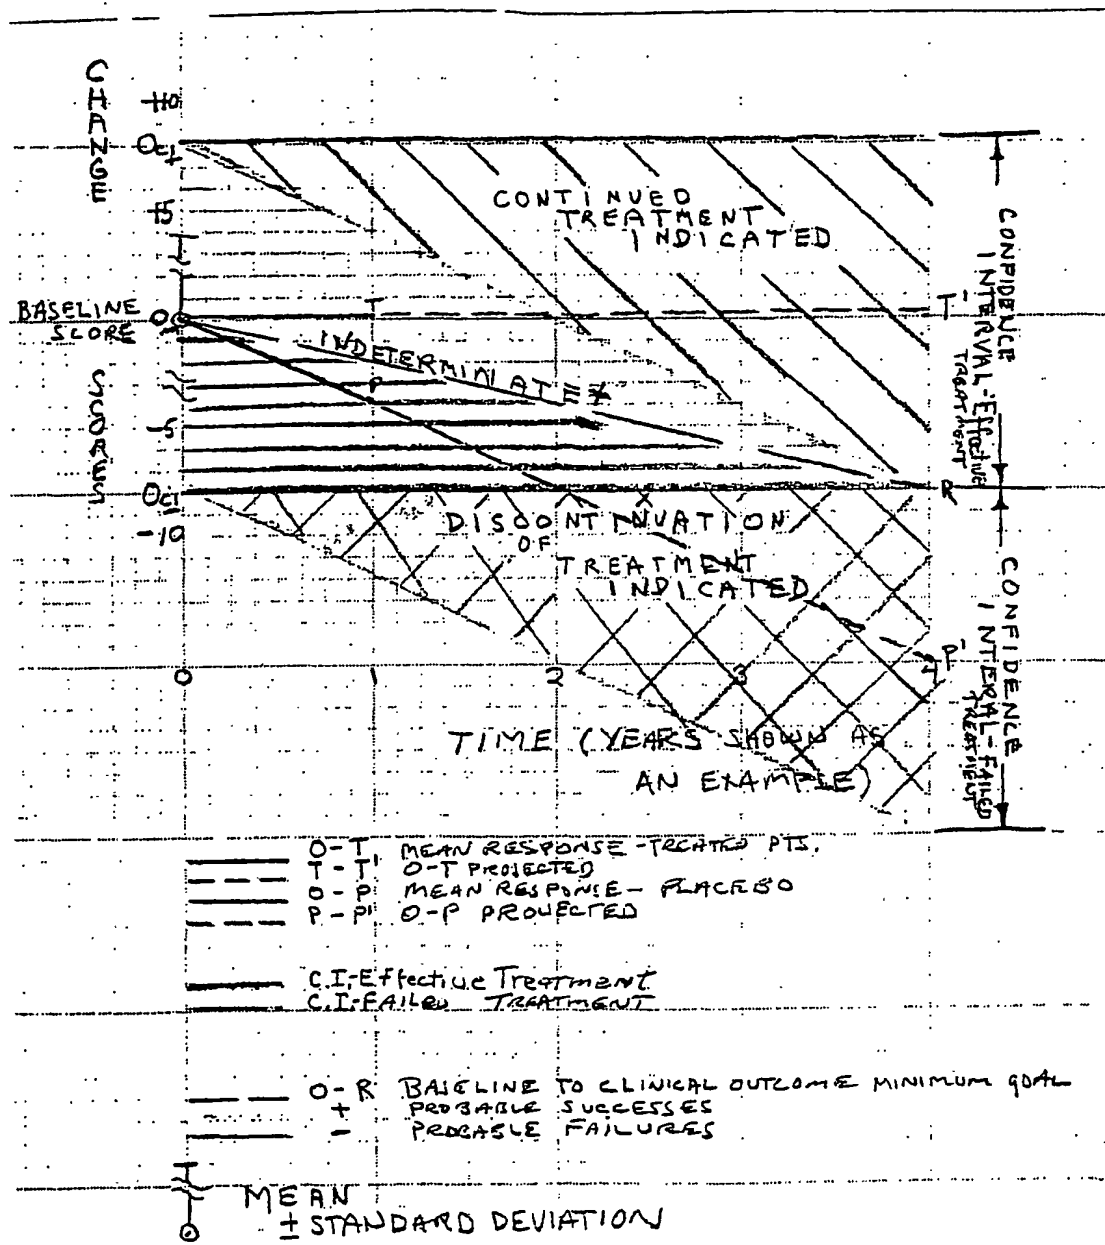 CHANGE
+10
OCI+
+5
BASELINE
SCORE
O
SCORES
-5
OCI-
-10
CONTINUED
TREATMENT
INDICATED
T
T'
INDETERMINATE
P
R
DISCONTINUATION
OF
TREATMENT
INDICATED
P'
0 1 2 3
TIME (YEARS SHOWN AS
AN EXAMPLE)
CONFIDENCE
INTERVAL-Effective
TREATMENT
CONFIDENCE
INTERAL-FAILED
TREATMENT
O-T MEAN RESPONSE-TREATED PTS.
T-T' O-T PROJECTED
O-P MEAN RESPONSE- PLACEBO
P-P' O-P PROJECTED
C.I.-Effective Treatment
C.I.-FAILED TREATMENT
O-R BASELINE TO CLINICAL OUTCOME MINIMUM GOAL
+ PROBABLE SUCCESSES
- PROBABLE FAILURES
MEAN
± STANDARD DEVIATION